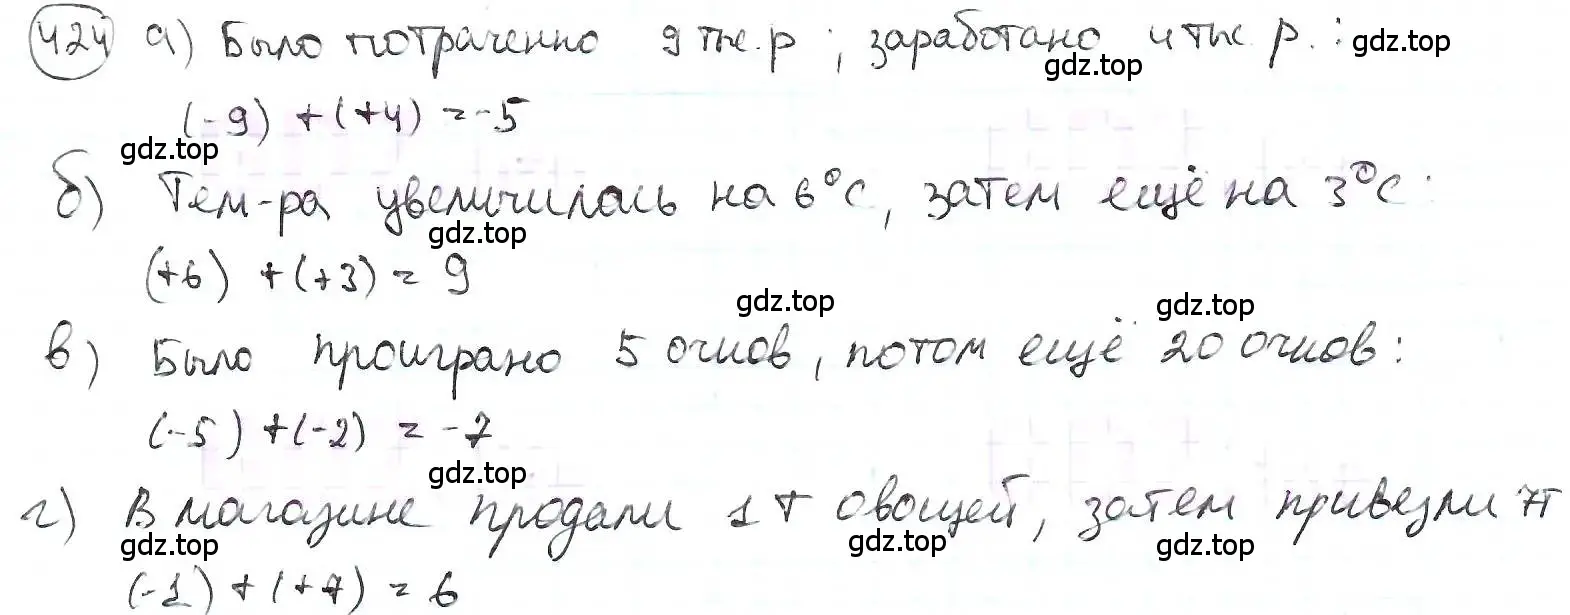 424 а) Было потраченно 9 тыс. р ; заработано 4 тыс. р. : gdz.top
gdz.top
(-9) + (+4) = -5
gdz.top
б) Тем-ра увеличилась на 6°С, затем ещё на 3°С :
gdz.top
(+6) + (+3) = 9
gdz.top gdz.top
в) Было проиграно 5 очков, потом ещё 20 очков :
(-5) + (-2) = -7
gdz.top
г) В магазине продали 1 т овощей, затем привезли 7т
gdz.top gdz.top gdz.top
(-1) + (+7) = 6